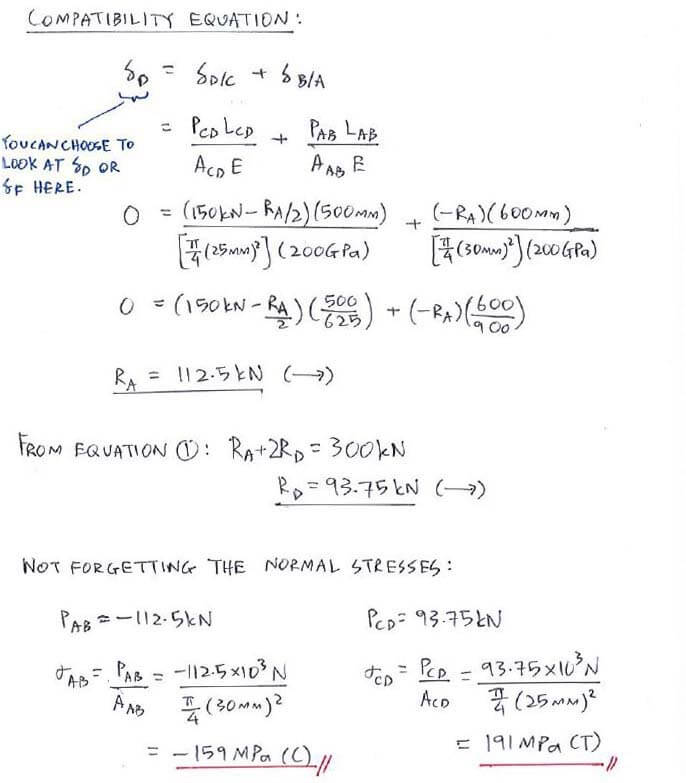 COMPATIBILITY EQUATION:
δD = δD/C + δB/A
= PCD LCD / ACD E + PAB LAB / AAB E
YOU CAN CHOOSE TO
LOOK AT δD OR
δF HERE.
0 = (150kN − RA/2)(500mm) / [π/4 (25mm)²](200GPa) + (−RA)(600mm) / [π/4 (30mm)²](200GPa)
0 = (150kN − RA/2)(500/625) + (−RA)(600/900)
RA = 112.5kN (→)
FROM EQUATION ①: RA+2RD = 300kN
RD = 93.75kN (→)
NOT FORGETTING THE NORMAL STRESSES:
PAB = −112.5kN
PCD = 93.75kN
σAB = PAB / AAB = −112.5×10³N / π/4 (30mm)²
= −159MPa (C)
σCD = PCD / ACD = 93.75×10³N / π/4 (25mm)²
= 191MPa (T)